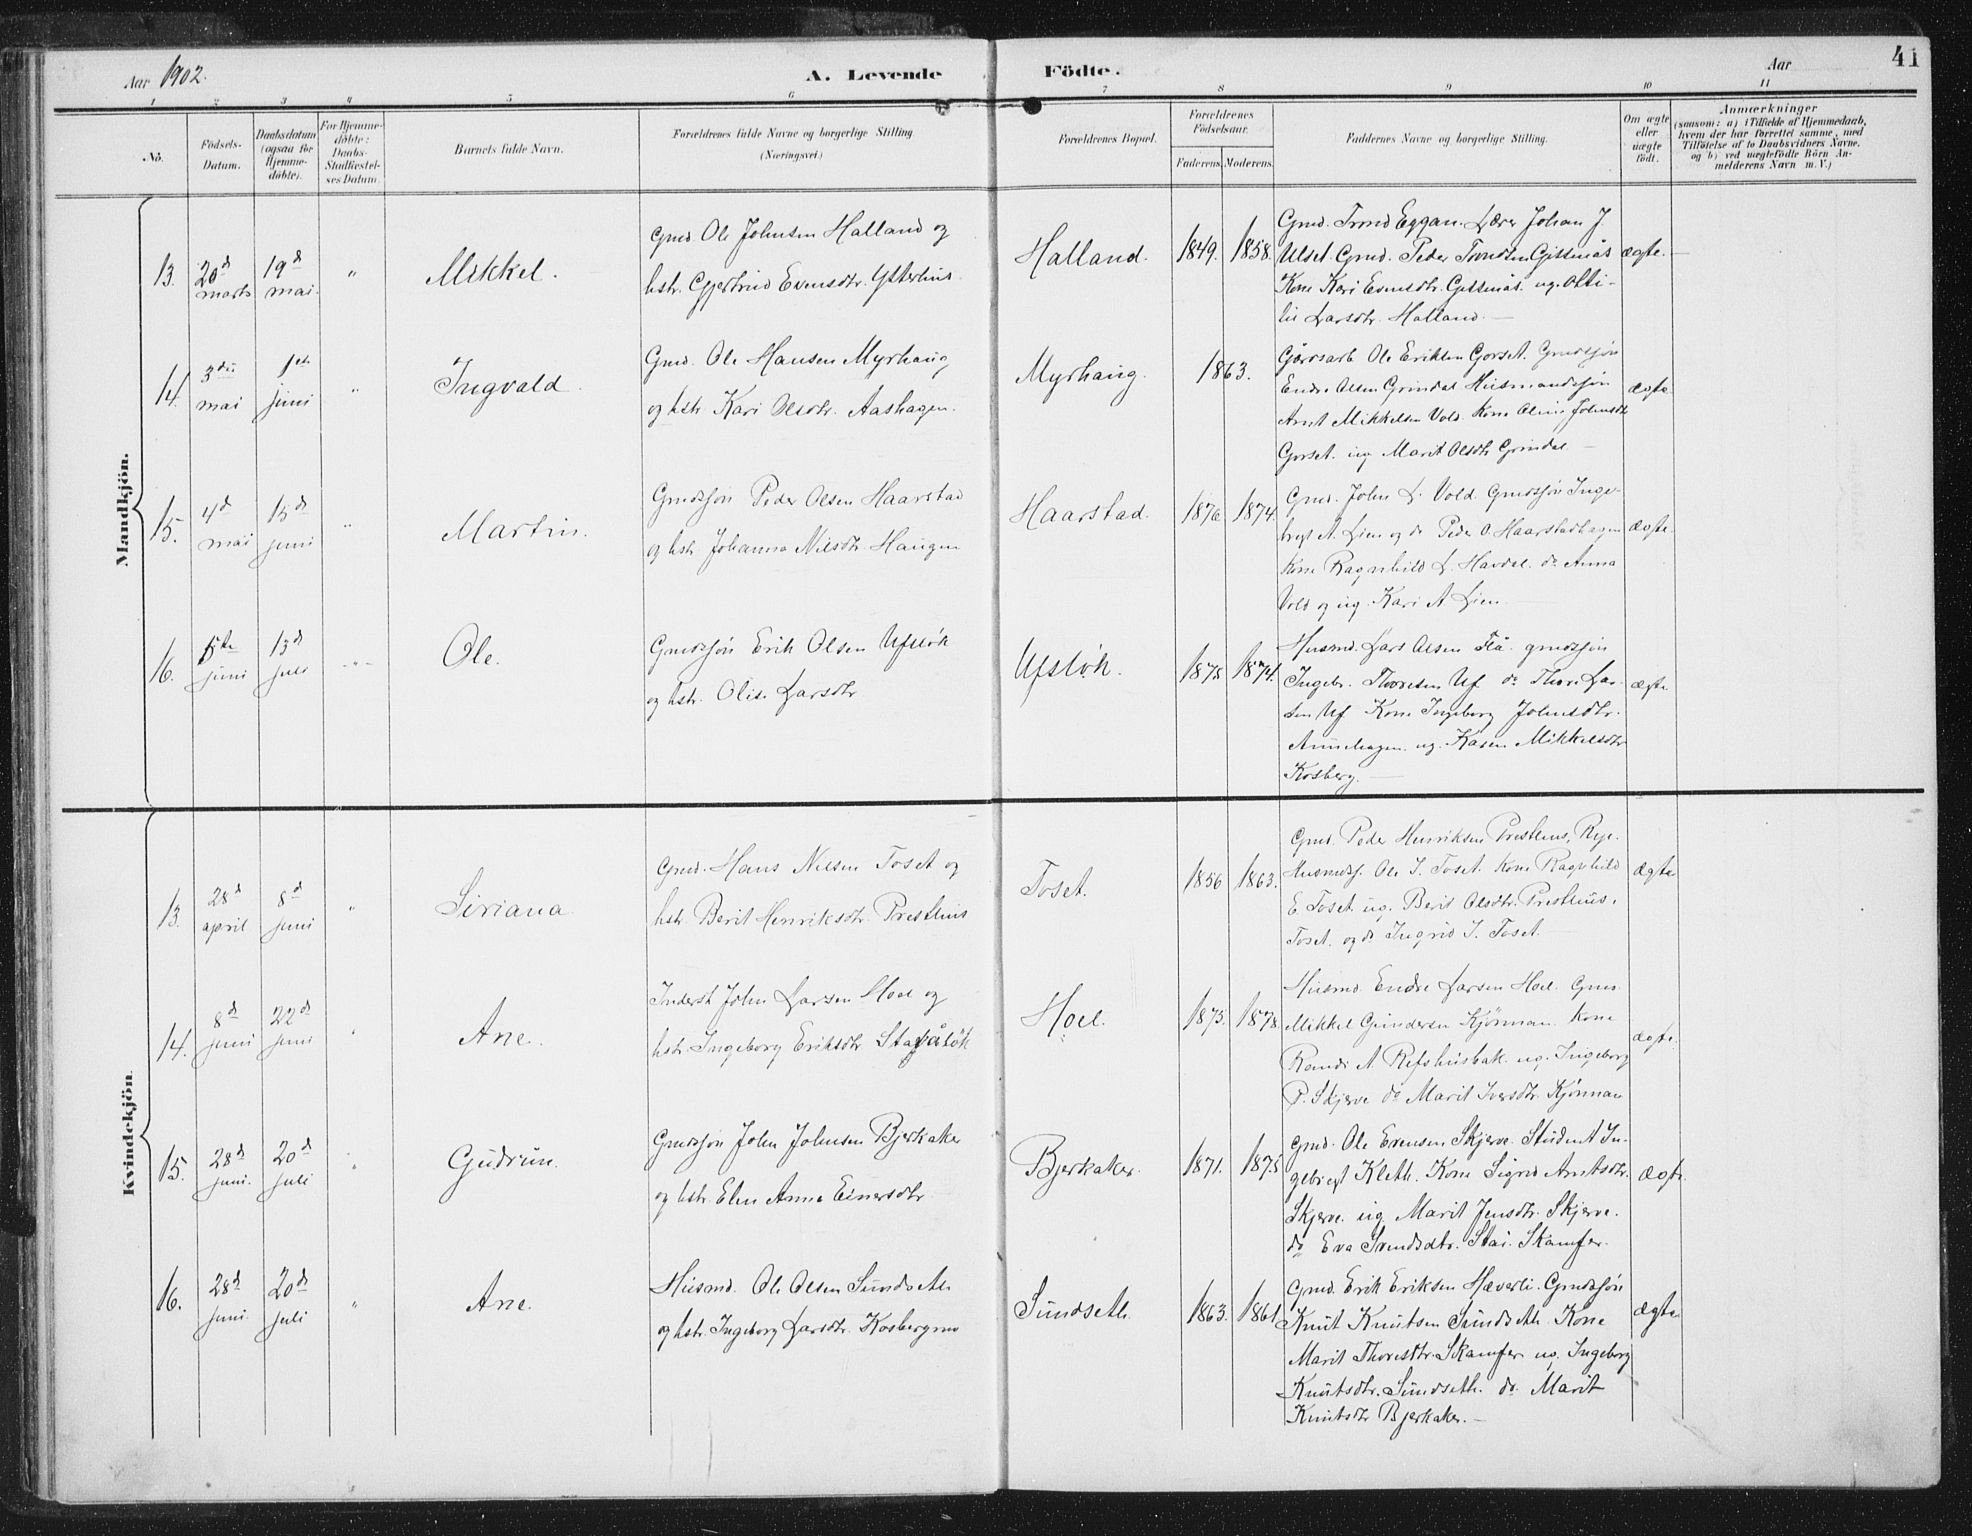 Aar 1902.
A. Levende
Födte.
Aar
41
1 2 3 4 5 6 7 8 9 10 11
No.
Födsels-
Datum.
Daabsdatum
(ogsaa for
Hjemme-
döbte).
For Hjemme-
döbte:
Daabs-
Stadfæstel-
ses Datum.
Barnets fulde Navn.
Forældrenes fulde Navne og borgerlige Stilling.
(Næringsvei.)
Forældrenes Bopæl.
Forældrenes
Födselsaar.
Faderens. Moderens.
Faddernes Navne og borgerlige Stilling.
Om ægte
eller
uægte
födt.
Anmærkninger
(saasom: a) i Tilfælde af Hjemmedaab,
hvem der har forrettet samme, med
Tilföielse af to Daabsvidners Navne,
og b) ved uægtefödte Börn An-
melderens Navn m. V.)
Mandkjön.
13. 20d marts 19d mai. " Mikkel.
Gmd. Ole Johnsen Halland og
hstr. Gjertrud Evensdtr. Ytterhus.
Halland. 1849. 1858.
Gmd. Trond Eggan. Lærer Johan J.
Ulset. Gmd. Peder Trondsen Gissnås
Kone Kari Evensdtr. Gissnås. ug. Otti-
lie Larsdtr. Halland. —
ægte. —
14. 3die mai 1ste juni " Ingvald.
Gmd. Ole Hansen Myrhaug
og hstr. Kari Olsdtr. Aashagen.
Myrhaug. 1863.
Gårdsarb. Ole Eriksen Gorset. Gmdssøn
Endre Olsen Grindal Husmandssøn
Arnt Mikkelsen Vold. Kone Oline Johnsdtr
Gorset. ug Marit Olsdtr Grindal —
ægte
15. 4d mai 15d juni " Martin.
Gmdssøn Peder Olsen Haarstad
og hstr. Johanna Nilsdtr. Haugen
Haarstad. 1876 1874.
Gmd. John L. Vold. Gmdssøn Inge-
brigt A. Lien og do Peder O. Haarstadhagen
Kone Ragnhild L. Havdal. do Anna
Vold og ug. Kari A Lien —
ægte.
16. 5te juni 13d juli " Ole.
Gmdssøn Erik Olsen Ufsløk
og hstr. Olise Larsdtr
Ufsløk. 1875 1874.
Husmd. Lars Olsen Flå. gmdssøn
Ingebr. Thoresen Uf do Thore Lar-
sen Uf Kone Ingeborg Johnsdtr.
Aunehagen. ug. Karen Mikkelsdtr
Kosberg. —
ægte
Kvindekjön.
13. 28d april 8d juni " Siriana
Gmd. Hans Nilsen Toset og
hstr. Berit Henriksdtr. Presthus
Toset. 1856 1863.
Gmd. Peder Henriksen Presthus,
Husmdsj. Ole I. Toset. Kone Ragnhild
E. Toset. ug. Berit Olsdtr. Presthus,
Toset. og do Ingrid I. Toset. —
ægte
14. 8d juni 22d juni " Ane.
Inderst John Larsen Hoel og
hstr. Ingeborg Eriksdtr
Hoel. 1875. 1878.
Husmd. Endre Larsen Hoel. Gmd.
Mikkel Gundersen Kjønman. Kone
Randi A. Refshusbak. ug. Ingeborg
P. Skjerve do Marit Iversdtr. Kjønman
ægte.
15. 28d juni. 20d juli " Gudrun.
Gmdssøn John Johnsen Bjerkaker
og hstr. Elen Anna Einersdtr
Bjerkaker. 1871. 1875
Gmd. Ole Evensen Skjerve. Student In-
gebrigt Kleth. Kone Sigrid Arntsdtr.
Skjerve. ug. Marit Jensdtr. Skjerve.
do Eva Svendsdtr. Stai. Skamfer.
ægte.
16. 28d juni. 20d juli " Ane.
Husmd. Ole Olsen Sundseth
og hstr. Ingeborg Larsdtr. Kosbergmo
Sundseth. 1863. 1861
Gmd. Erik Eriksen Hæverli. Gmdssøn
Knut Knutsen Sundseth. Kone
Marit Thoresdtr. Skamfer ug. Ingeborg
Knutsdtr. Sundseth. do. Marit
Knutsdtr Bjerkaker. —
ægte